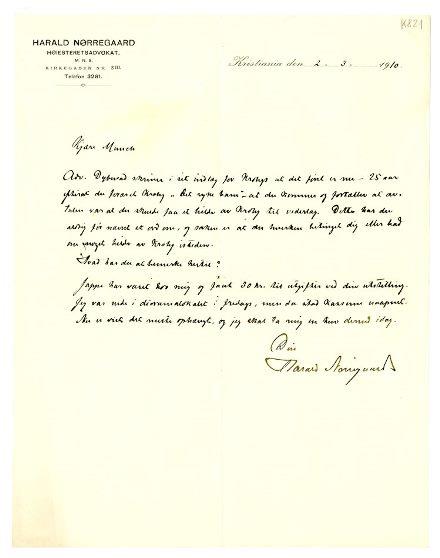 K 821
HARALD NØRREGAARD
HØIESTERETSADVOKAT.
M. N. S.
KIRKEGADEN NR.
Telefon 3281.
Kristiania den 2. 3. 1910.
Kjære Munch
Adv. Dybwad skriver i sit indlæg for Krohgs at det først er nu – 25 aar
efterat du foræret Krohg „Det syke barn" – at du kommer og fortæller at av-
talen var at du skulde faa et billede av Krohg til vederlag. Dette har du
aldrig før nævnt et ord om, og saken er at du hverken betinget dig eller bad
om noget billede av Krohg isteden.
Hvad har du at bemerke hertil?
Jappe har været hos mig og faat 30 kr. til utgifter ved din utstilling.
Jeg var nede i Dioramalokalet i fredags, men da stod kasserne uaapnet.
Nu er vist det meste ophængt, og jeg skal ta mig en tur derned idag.
Din
Harald Nørregaard